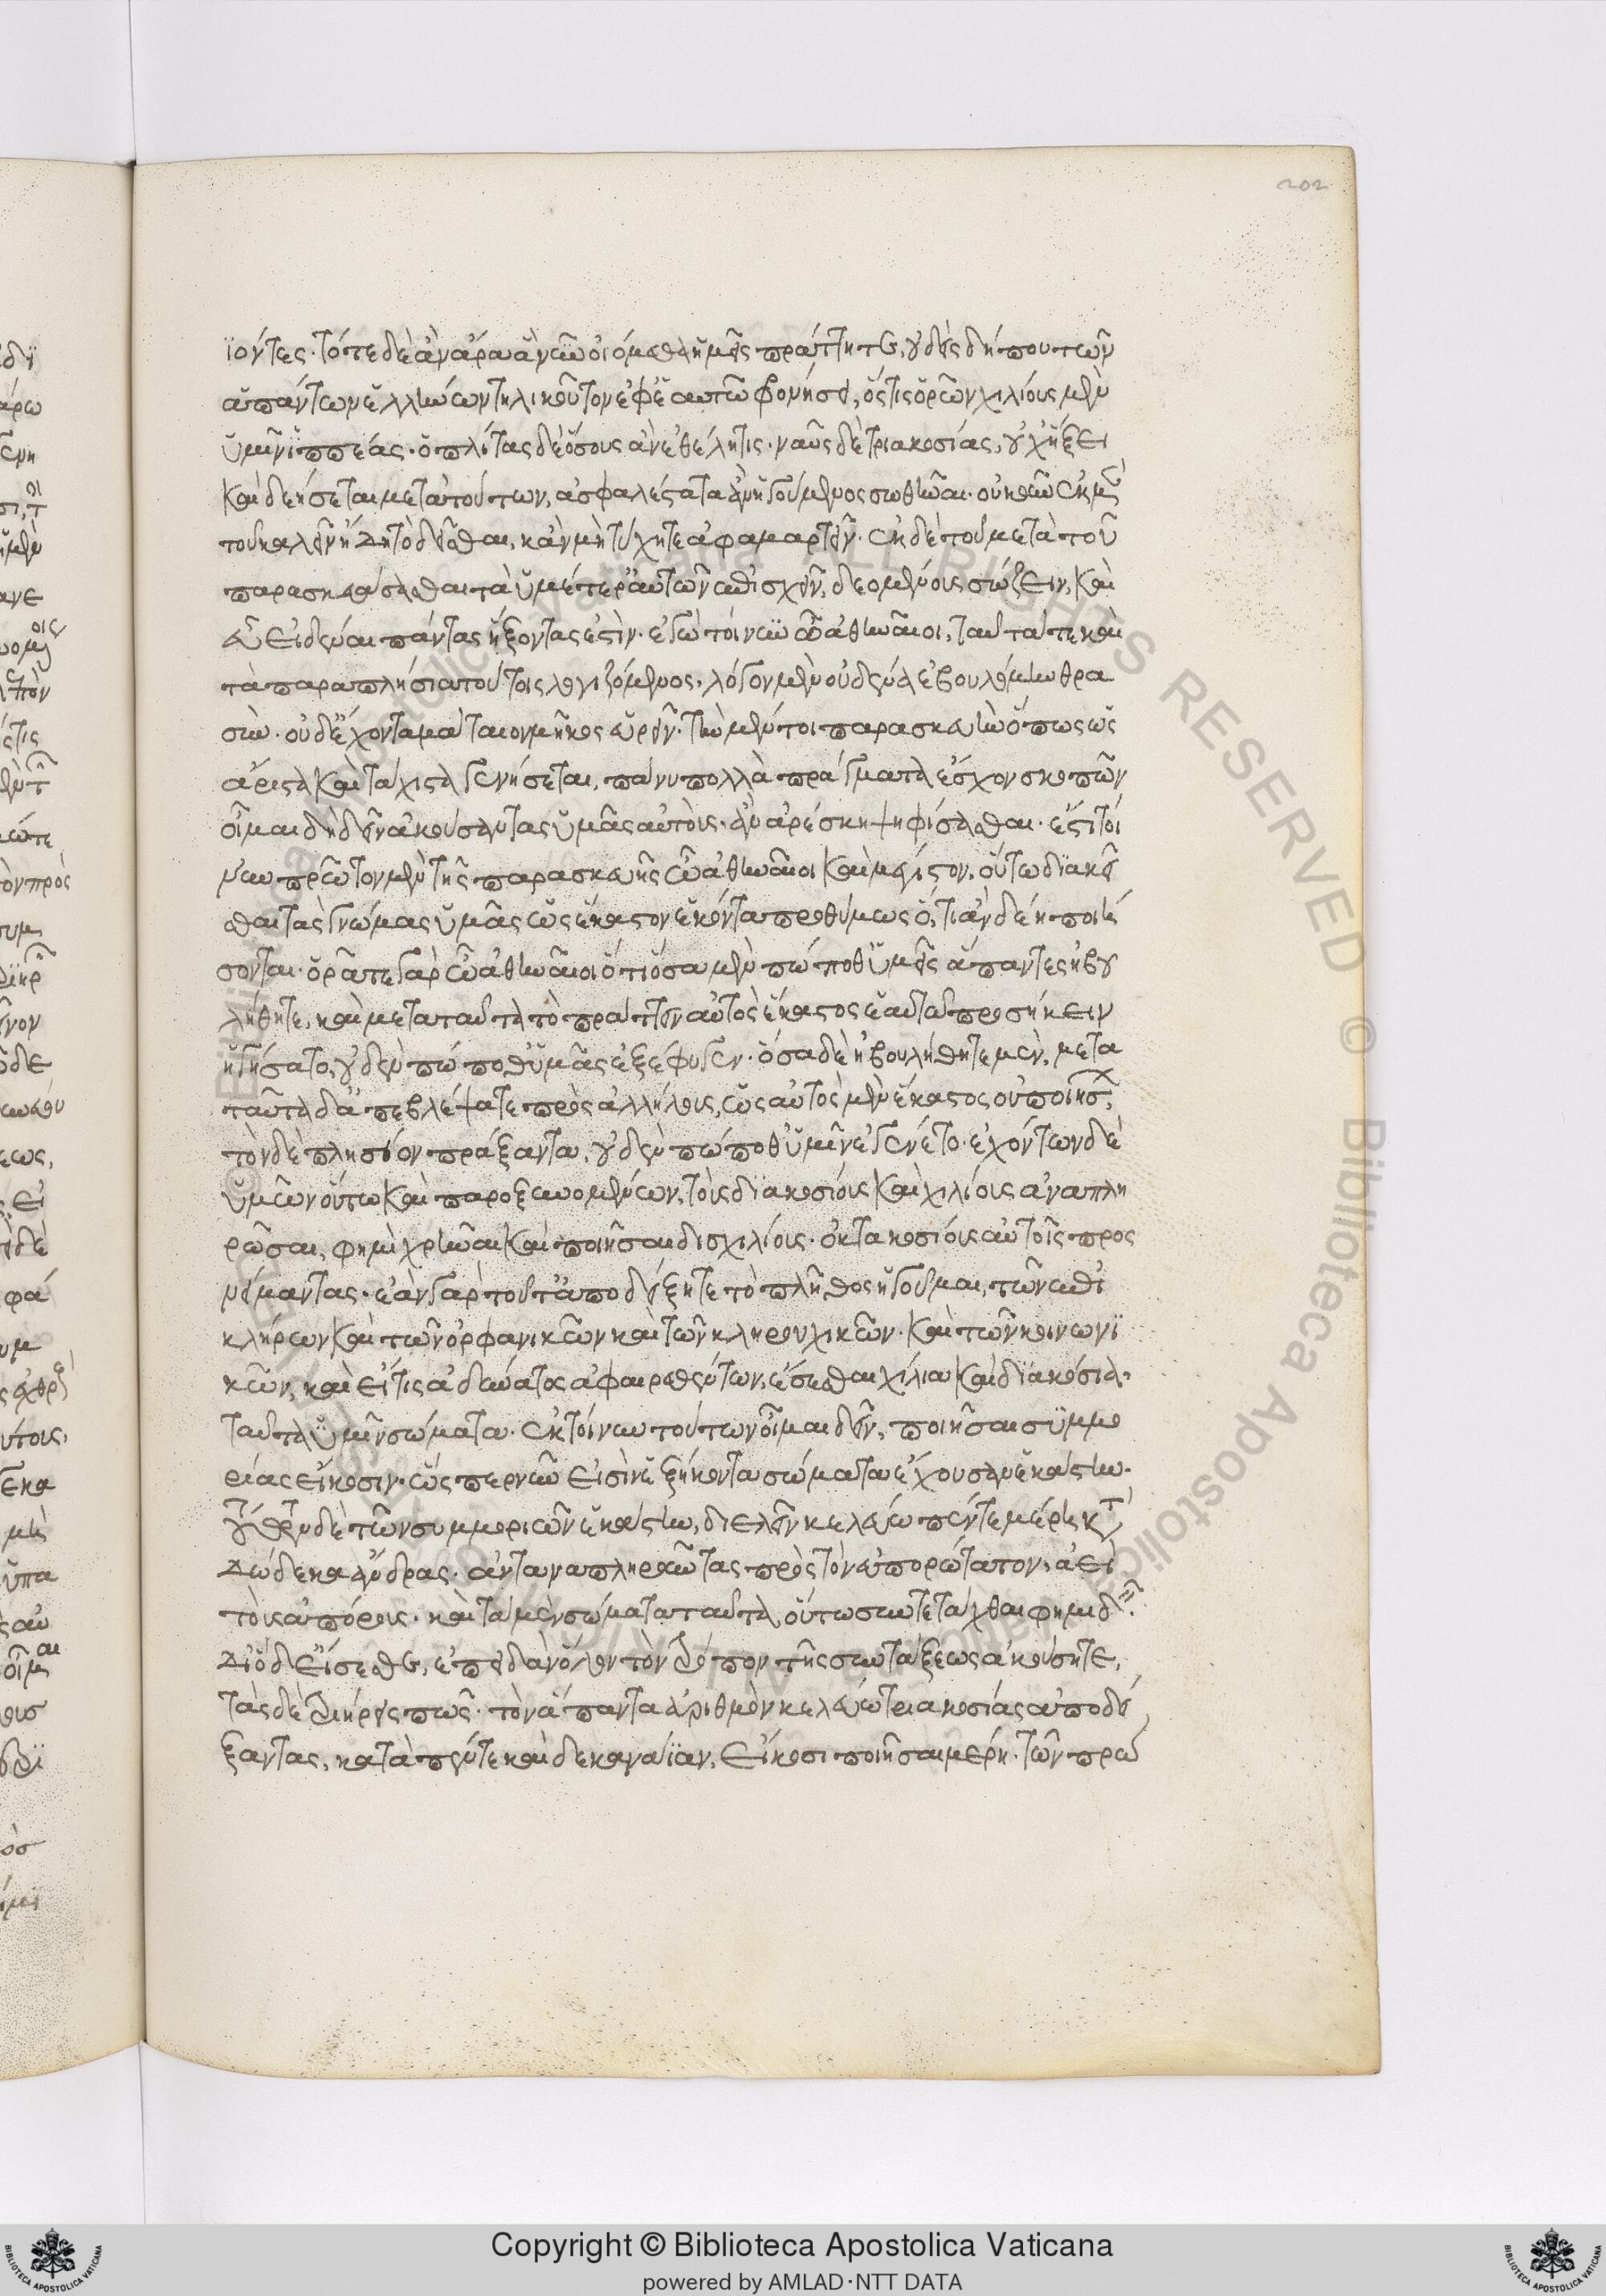 202
ϊόντες· τότε δὲ ἀν ἄρα ἃ νῦν οἰόμεθα ἡμεῖς πράττητε, οὐδεὶς δήπου τῶν
ἁπάντων ἑλλήνων τηλικοῦτον ἐφ' ἑαυτῶ φρονήσει, ὅςτις ὁρῶν χιλίους μὲν
ὑμῖν ἱππέας· ὁπλίτας δὲ ὅσους ἂν ἐθέλη τις· ναῦς δὲ τριακοσίας, οὐχ ἥξει
καὶ δεήσεται μετὰ τούτων, ἀσφαλέστατα ἂν ἡγούμενος σωθῆναι· οὐκοῦν ἐκ μὲν
τοῦ καλεῖν ἤδη τὸ δεῖσθαι, κἂν μὴ τύχητε ἀφαμαρτεῖν· ἐκ δὲ τοῦ μετὰ τοῦ
παρασκευάσασθαι τὰ ὑμέτερ' αὐτῶν ἐπισχεῖν, δεομένοις σώζειν, καὶ
εὖ εἰδέναι πάντας ἥξοντας ἐστίν· ἐγὼ τοίνυν ὦ ἀθηναῖοι, ταῦτά τε καὶ
τὰ παραπλήσια τούτοις λογιζόμενος, λόγον μὲν οὐδένα ἐβουλόμην θρα
σὺν· οὐδ' ἔχοντα μάταιον μῆκος εὑρεῖν· τὴν μέντοι παρασκευὴν ὅπως ὡς
ἄριστα καὶ τάχιστα γενήσεται, πάνυ πολλὰ πράγματα ἔσχον σκοπῶν
οἶμαι δὴ δεῖν ἀκούσαντας ὑμᾶς αὐτοῖς· ἂν ἀρέσκη ψηφίσασθαι· ἔστι τοί
νυν πρῶτον μὲν τῆς παρασκευῆς ὦ ἀθηναῖοι καὶ μέγιστον, οὕτω διακεῖ
σθαι τὰς γνώμας ὑμᾶς ὡς ἕκαστον ἑκόντα προθύμως ὅ, τι ἂν δέη ποιή
σονται· ὁρᾶτε γὰρ ὦ ἀθηναῖοι ὅτι ὅσα μὲν πώποθ' ὑμεῖς ἅπαντες ἠβου
λήθητε, καὶ μετὰ ταῦτα τὸ πράττειν αὐτὸς ἕκαστος ἑαυτῶ προσήκειν
ἡγήσατο, οὐδὲν πώποθ' ὑμᾶς ἐξέφυγεν· ὅσα δὲ ἠβουλήθητε μὲν, μετὰ
ταῦτα δ' ἀπεβλέψατε πρὸς ἀλλήλους, ὡς αὐτὸς μὲν ἕκαστος οὐ ποιήσων,
τὸν δὲ πλησίον πράξαντα, οὐδὲν πώποθ' ὑμῖν ἐγένετο· ἐχόντων δὲ
ὑμῶν οὕτω καὶ παροξυνομένων, τοὺς διακοσίους καὶ χιλίους ἀναπλη
ρῶσαι, φημὶ χρῆναι καὶ ποιῆσαι δισχιλίους· ὀκτακοσίους αὐτοῖς προς
νείμαντας· ἐὰν γὰρ τοῦτ' ἀποδείξητε τὸ πλῆθος ἡγοῦμαι, τῶν ἐπι
κλήρων καὶ τῶν ὀρφανικῶν καὶ τῶν κληρουχικῶν· καὶ τῶν κοινωνϊ
κῶν, καὶ εἴ τις ἀδύνατος ἀφαιρεθέντων, ἔσεσθαι χίλια καὶ διακόσια·
ταῦτα ὑμῖν σώματα· ἐκ τοίνυν τούτων οἶμαι δεῖν, ποιῆσαι συμμο
ρίας εἴκοσιν· ὥςπερ νῦν εἰσὶν ἑξήκοντα σώματα ἐχούσαν ἑκάστην·
τούτων δὲ τῶν συμμοριῶν ἑκάστην, διελεῖν κελεύω πέντε μέρη κατὰ
δώδεκα ἄνδρας· ἀνταναπληροῦντας πρὸς τὸν εὐπορώτατον, ἀεὶ
τοὺς ἀπόρους· καὶ τὰ μὲν σώματα ταῦτα, οὕτω συντετάχθαι φημὶ δεῖν·
διὸ δὲ εἴσεσθε, ἐπειδὰν ὅλον τὸν τρόπον τῆς συντάξεως ἀκούσητε,
τὰς δὲ τριήρεις πῶς· τὸν ἅπαντα ἀριθμὸν κελεύω τριακοσίας ἀποδεί
ξαντας, κατὰ πέντε καὶ δεκαναΐαν, εἴκοσι ποιῆσαι μέρη· τῶν πρώ
Copyright © Biblioteca Apostolica Vaticana
powered by AMLAD·NTT DATA